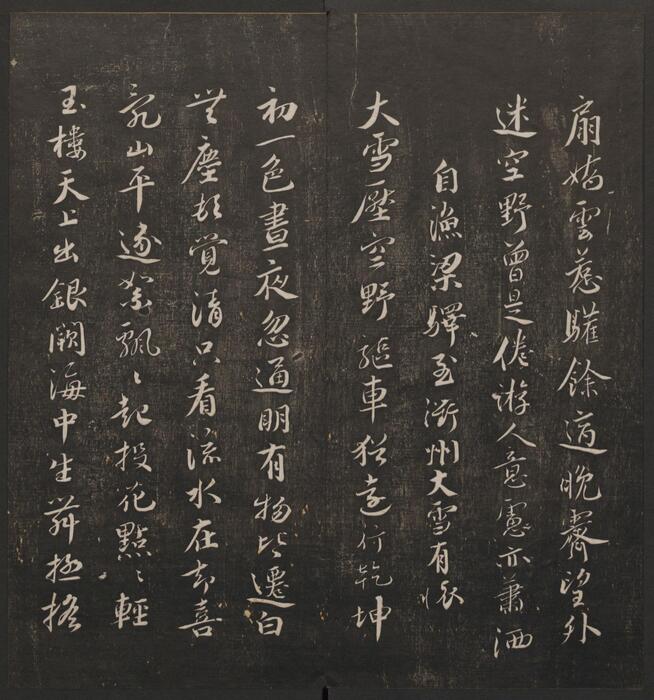 扇嬌雲惹驩餘適晚霽望外
迷空野曾是倦游人意慮亦蕭洒
自漁梁驛至衢州大雪有懷
大雪壓空野驅車猶遠行乾坤
初一色晝夜忽通明有物皆遷白
無塵頓覺清只看流水在却喜
亂山平逐絮飄飄起投花點點輕
玉樓天上出銀闕海中生舞極搖